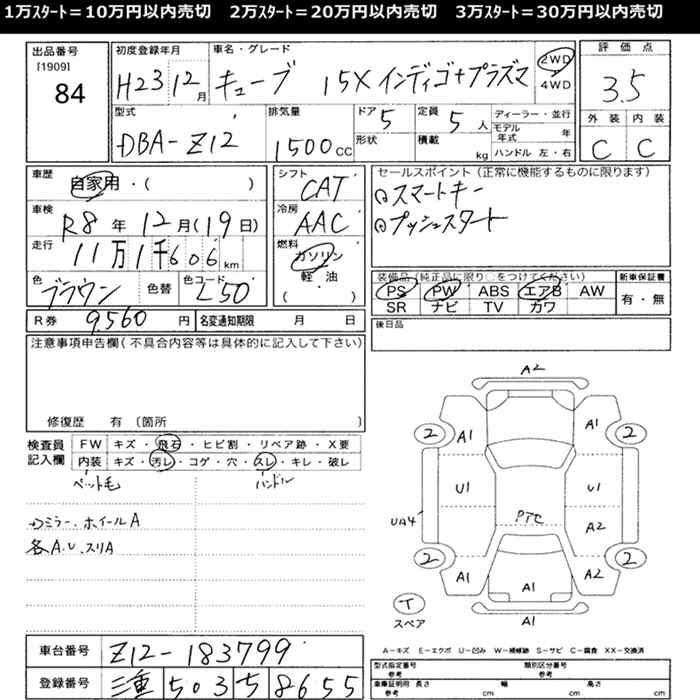 1万ｽﾀｰﾄ＝10万円以内売切　2万ｽﾀｰﾄ＝20万円以内売切　3万ｽﾀｰﾄ＝30万円以内売切
出品番号
[1909]
84
初度登録年月
H23 12月
車名・グレード
キューブ 15X インディゴ+プラズマ
2WD
4WD
評価点
3.5
外装 内装
C C
型式
DBA-Z12
排気量
1500cc
ドア
5
形状
定員
5人
積載
kg
ディーラー・並行
モデル年式 年
ハンドル 左・右
車歴
自家用・( )
車検
R8年12月(19日)
走行
11万1千606km
色
ブラウン
色替
色コード
L50
シフト
CAT
冷房
AAC
燃料
ガソリン
軽・油
( )
セールスポイント(正常に機能するものに限ります)
スマートキー
プッシュスタート
装備品(純正品に限り○をつけてください)
PS PW ABS エアB AW
SR ナビ TV カワ
新車保証書
有・無
R券 9,560円
名変通知期限 月 日
後日品
注意事項申告欄(不具合内容等は具体的に記入して下さい)
修復歴 有 (箇所 )
検査員記入欄
FW キズ・飛石・ヒビ割・リペア跡・X要
内装 キズ・汚レ・コゲ・穴・スレ・キレ・破レ
ペット毛 ハンドル
ミラー、ホイールA
各A.U.スリA
A2
2 A1 A1 2
U1 U1
UA4 PTE A2
2 A1 A1 A2 2
T
スペア
A1
A-キズ E-エクボ U-凹み W-補修跡 S-サビ C-腐食 XX-交換済
車台番号 Z12-183799
登録番号 三重 503 ち 8655
型式指定番号
参考
類別区分番号
参考
車庫証明用 長さ 幅 高さ
参考 cm cm cm